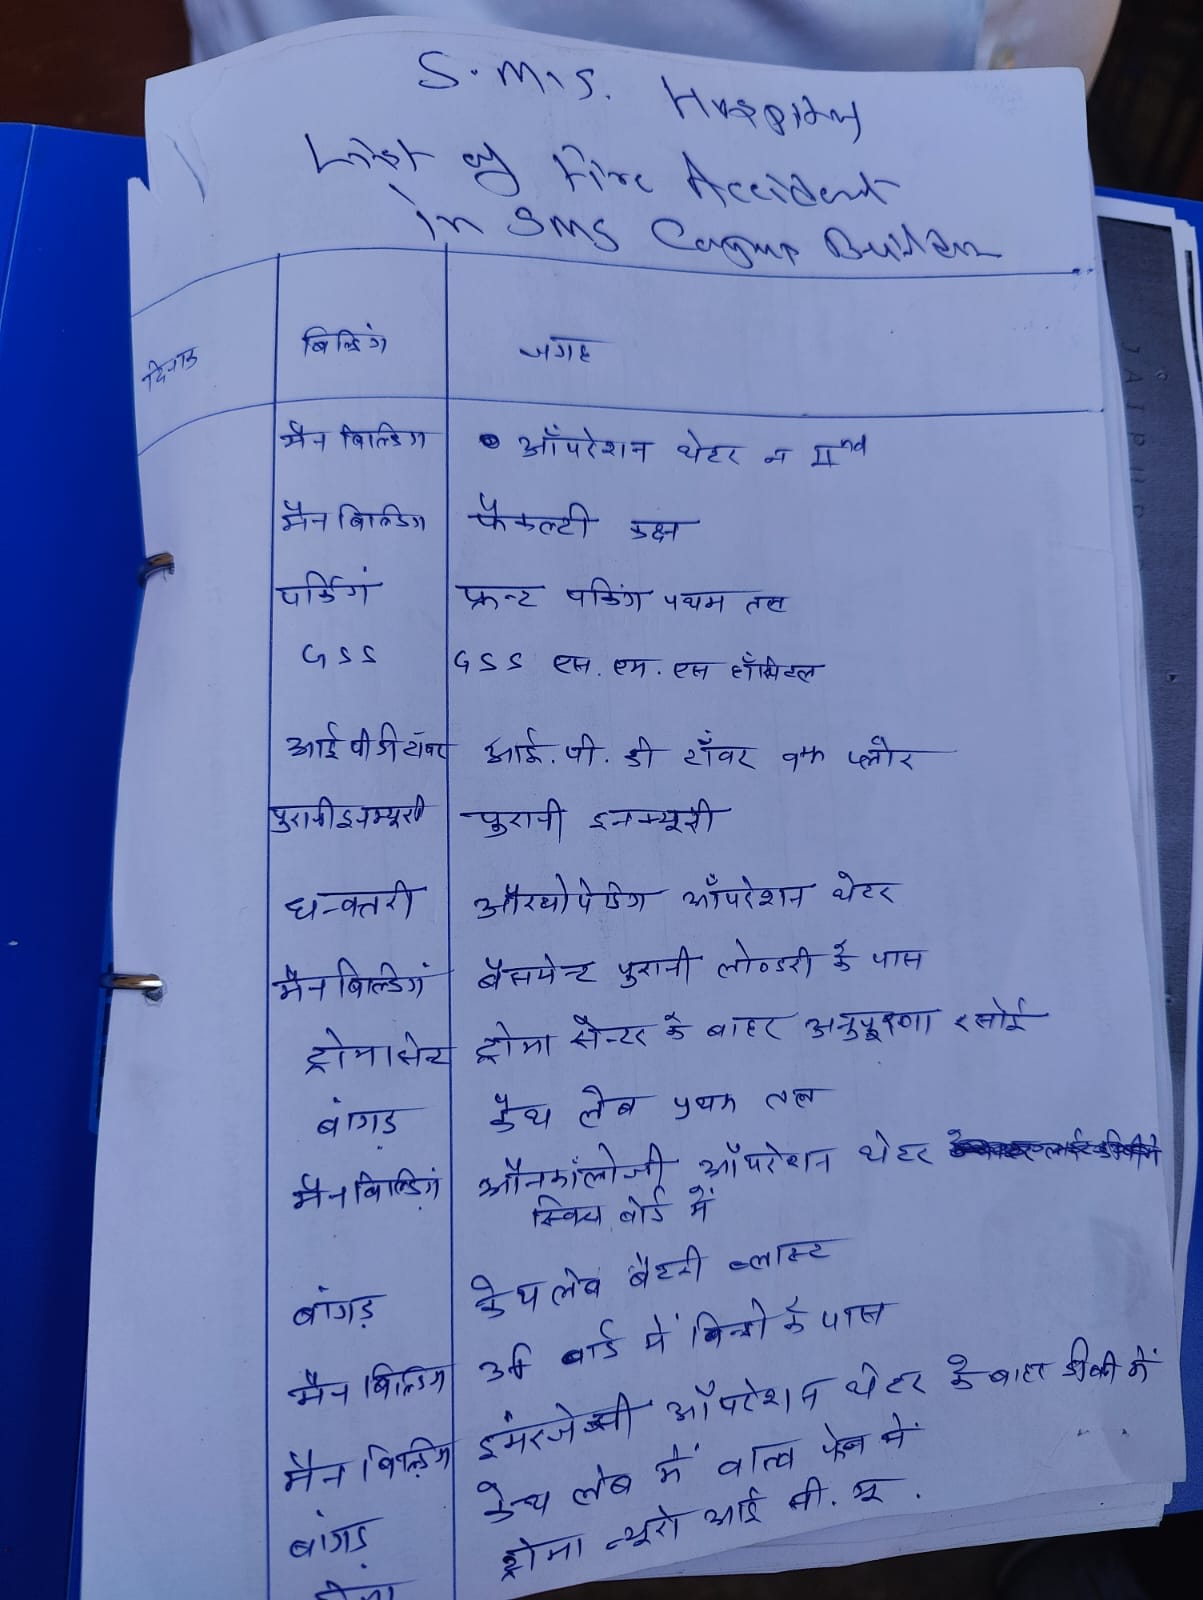 S.M.S. Hospital
List of Fire Accident
in SMS Campus Building
दिनांक बिल्डिंग जगह
मैन बिल्डिंग ऑपरेशन थेटर न IInd
मैन बिल्डिंग फैकल्टी कक्ष
पर्किगं फ्रन्ट पर्किंग प्रथम तल
GSS GSS एस. एम. एस हॉस्पिटल
आई पी डी टॉवर आई. पी. डी टॉवर फ्लोर
पुरानी इनक्यूरी पुरानी इनक्यूरी
धन्वतरी ऑरथोपेडिग ऑपरेशन थेटर
मैन बिल्डिगं बैसमेन्ट पुरानी लोण्डरी के पास
ट्रोमा सेन्ट ट्रोमा सैन्टर के बाहर अनुपूरणा रसोई
बांगड़ कैथ लैब प्रथम तल
मैन बिल्डिगं ऑनकॉलोजी ऑपरेशन थेटर
स्विच बोर्ड में
बांगड़ केथ लेब बैटरी ब्लास्ट
मैन बिल्डिग वार्ड में के पास
मैन बिल्डिग इमरजेन्सी ऑपरेशन थेटर के बाहर डीबी में
बांगड़ केथ लेब में वाल्व फेन में
ट्रोमा ट्रोमा न्यूरो आई सी. यू.
JAIPUR